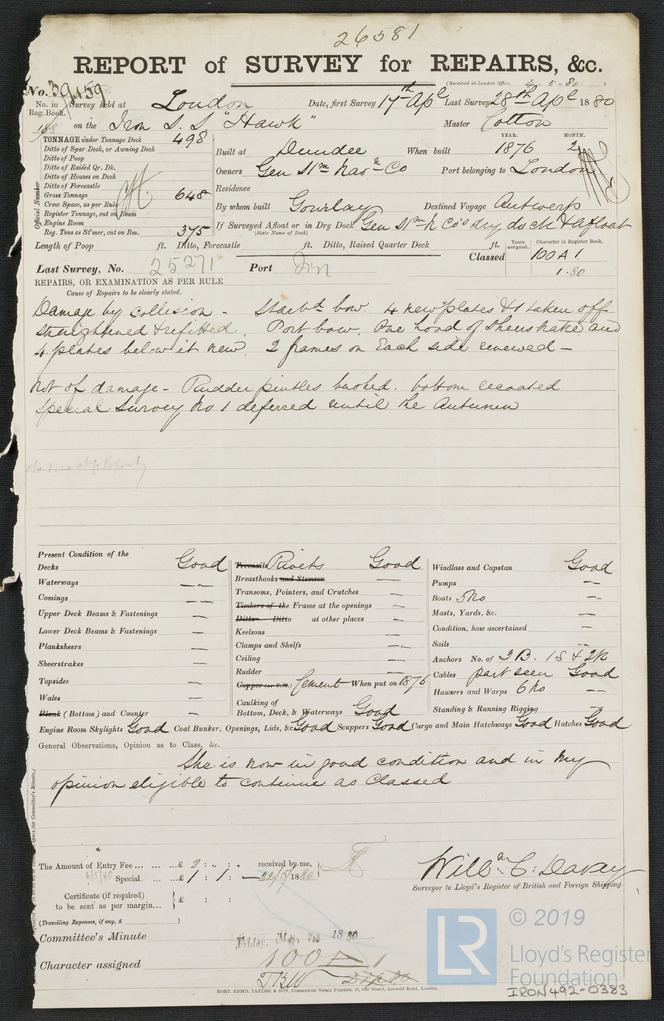 26581
REPORT of SURVEY for REPAIRS, &c.
(Received at London Office, 4-5-80
No. 39459
No. in Reg. Book. Survey held at London Date, first Survey 17th Apl Last Survey 28th Apl 1880
on the Iron S.S. "Hawk" Master Cotton
TONNAGE under Tonnage Deck 498
Ditto of Spar Deck, or Awning Deck
Ditto of Poop
Ditto of Raised Qr. Dk.
Ditto of Houses on Deck
Ditto of Forecastle
Gross Tonnage 648
Crew Space, as per Rule
Register Tonnage, cut on Beam
Engine Room
Reg. Tons as St'mer, cut on Bm. 375
Official Number
YEAR. MONTH.
Built at Dundee When built 1876 2
Owners Gen Stm Navn Co Port belonging to London
Residence
By whom built Gourlay Destined Voyage Antwerp
If Surveyed Afloat or in Dry Dock Gen Stm N Co's dry dock & afloat
(State Name of Dock)
Length of Poop ft. Ditto, Forecastle ft. Ditto, Raised Quarter Deck ft.
Years assigned. Character in Register Book.
Classed 100 A 1
1.80
Last Survey, No. 25271 Port Lon
REPAIRS, OR EXAMINATION AS PER RULE
Cause of Repairs to be clearly stated.
Damage by collision - Starbd bow. 4 new plates & 1 taken off
straightened & refitted Port bow. One hood of Sheerstrake and
4 plates below it new. 2 frames on Each side renewed -
Not of damage - Rudder pintles bushed. bottom recoated
Special Survey No 1 deferred until the Autumn
Present Condition of the
Decks Good
Waterways —
Comings —
Upper Deck Beams & Fastenings —
Lower Deck Beams & Fastenings —
Planksheers —
Sheerstrakes —
Topsides —
Wales —
Plank (Bottom) and Counter —
Treenails Rivets Good
Breasthooks and Stemson —
Transoms, Pointers, and Crutches —
Timbers of the Frame at the openings —
Ditto Ditto at other places —
Keelsons —
Clamps and Shelfs —
Ceiling —
Rudder —
Copper (or Y.M.) Cement When put on 1876
Caulking of Bottom, Deck, & Waterways Good
Windlass and Capstan Good
Pumps —
Boats 5 No —
Masts, Yards, &c. —
Condition, how ascertained —
Sails —
Anchors No. of 3B. 1S & 2K
Cables part seen Good
Hawsers and Warps 6 No —
Standing & Running Rigging
Engine Room Skylights Good Coal Bunker, Openings, Lids, &c Good Scuppers Good Cargo and Main Hatchways Good Hatches Good
General Observations, Opinion as to Class, &c.
She is now in good condition and in my
opinion eligible to continue as Classed
The Amount of Entry Fee ... ... £ 2 : : received by me,
Special ... £ 1 : 1 : — 22/5/1880
Certificate (if required) to be sent as per margin... £ : :
(Travelling Expenses, if any, £
Willm C. Davey
Surveyor to Lloyd's Register of British and Foreign Shipping
Committee's Minute Friday, May 1880
Character assigned 100 A 1
LR © 2019
Lloyd's Register
Foundation
IRON492-0383